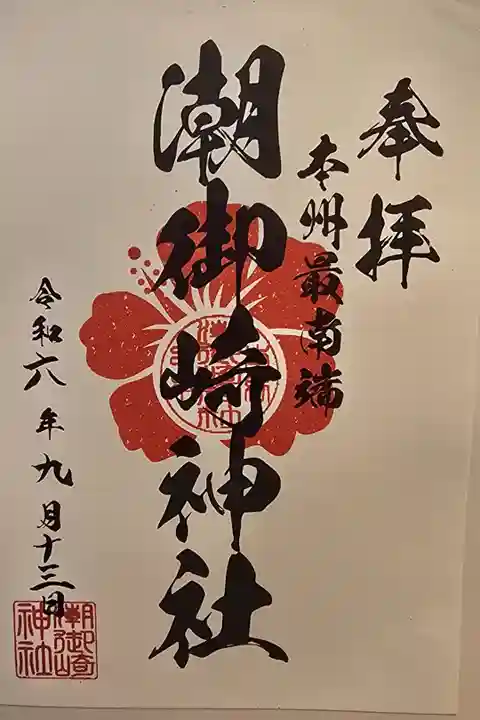 奉拝
本州最南端
潮御崎神社
令和六年九月十三日
潮御崎
神社